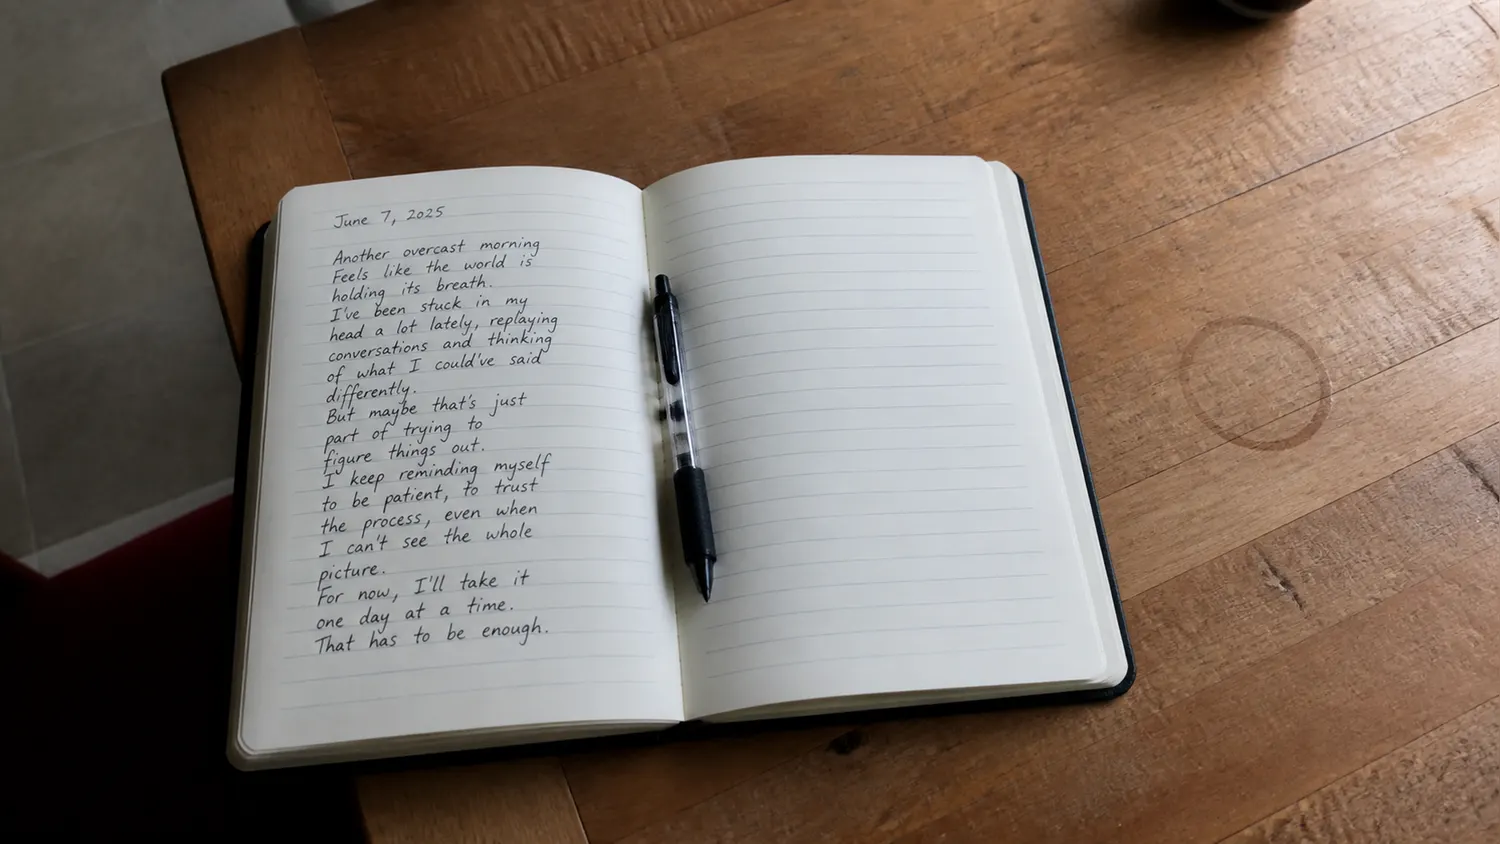 June 7, 2025
Another overcast morning
Feels like the world is
holding its breath.
I've been stuck in my
head a lot lately, replaying
conversations and thinking
of what I could've said
differently.
But maybe that's just
part of trying to
figure things out.
I keep reminding myself
to be patient, to trust
the process, even when
I can't see the whole
picture.
For now, I'll take it
one day at a time.
That has to be enough.